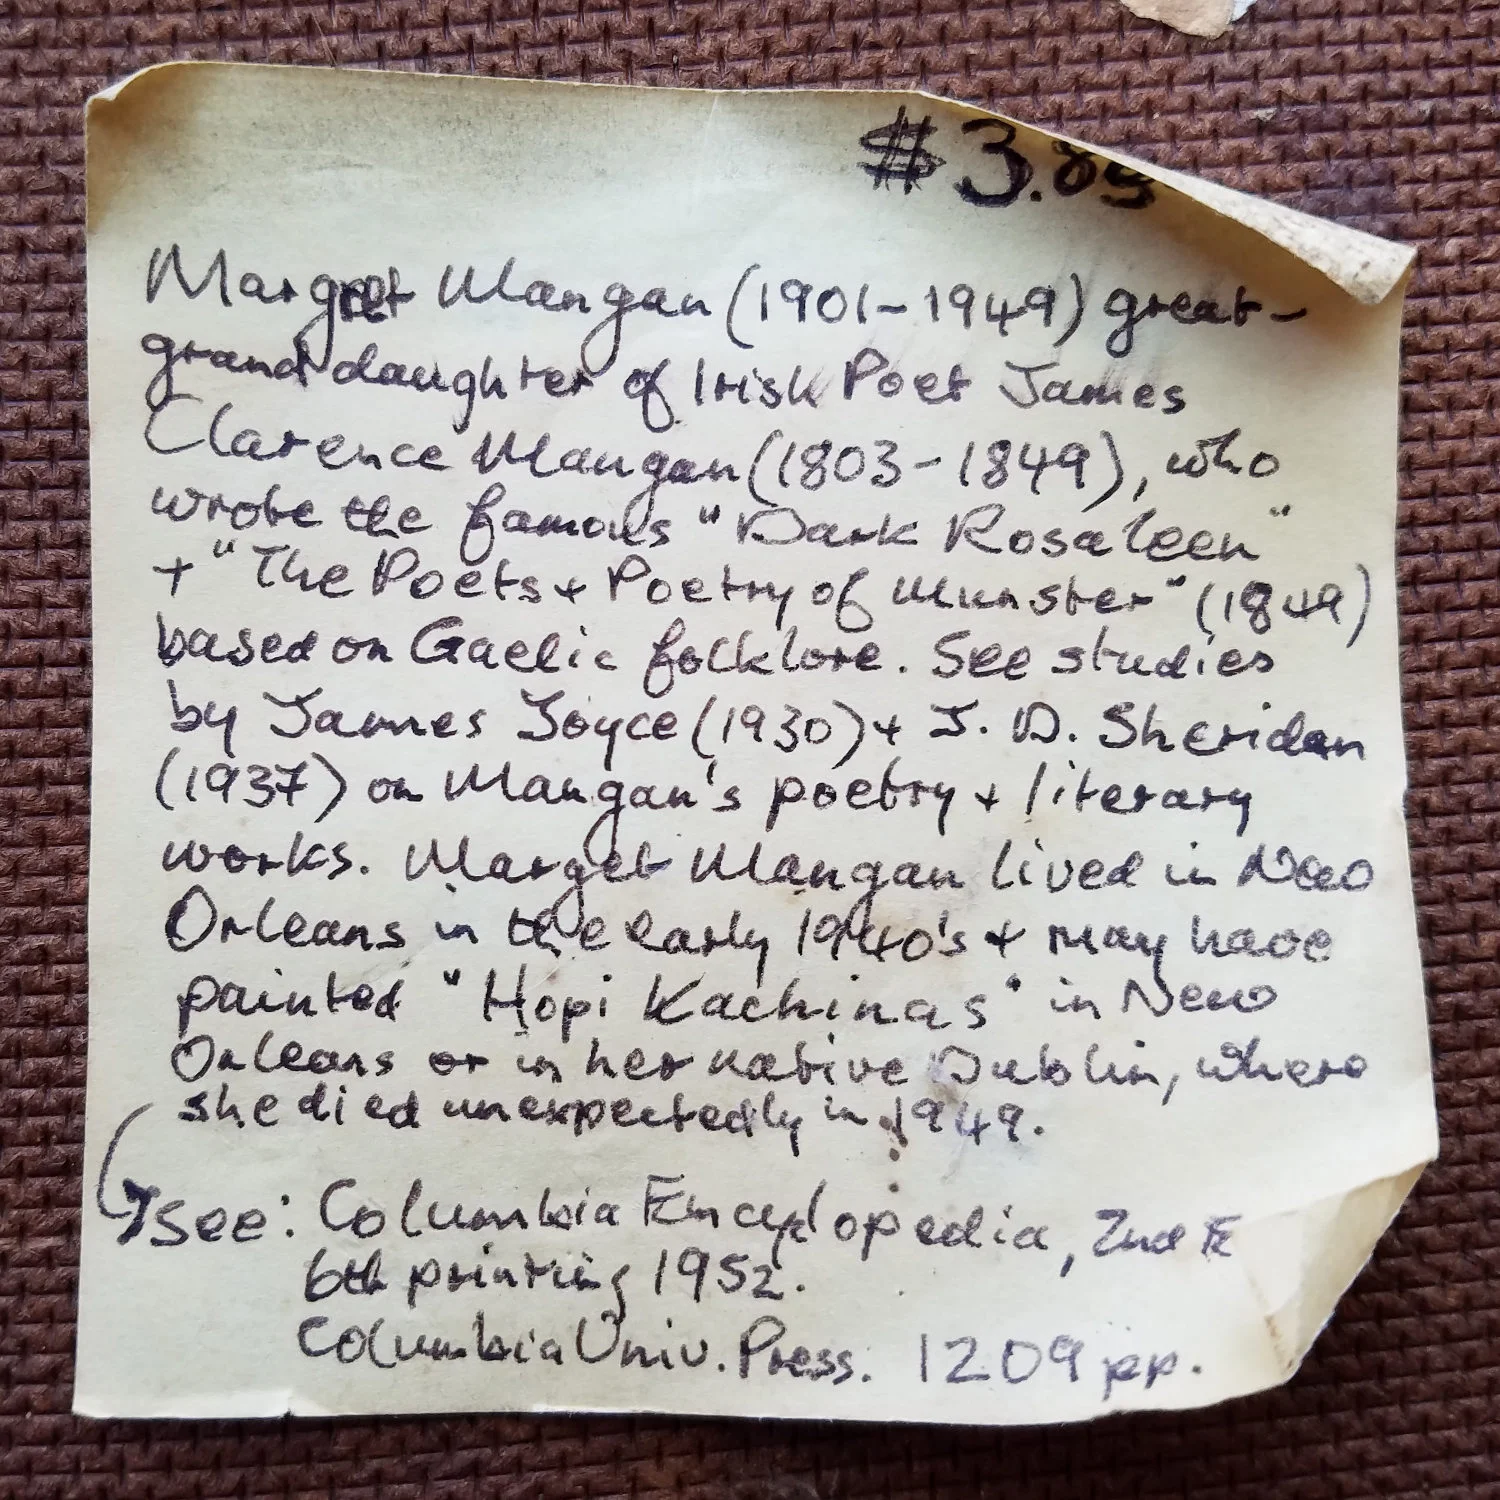 $3.89
Margret Mangan (1901-1949) great-
granddaughter of Irish Poet James
Clarence Mangan (1803-1849), who
wrote the famous "Dark Rosaleen"
+ "The Poets + Poetry of Munster" (1849)
based on Gaelic folklore. See studies
by James Joyce (1930) + J. D. Sheridan
(1937) on Mangan's poetry + literary
works. Marget Mangan lived in New
Orleans in the early 1940's + may have
painted "Hopi Kachinas" in New
Orleans or in her native Dublin, where
she died unexpectedly in 1949.
see: Columbia Encyclopedia, 2nd E
6th printing 1952.
Columbia Univ. Press. 1209 pp.